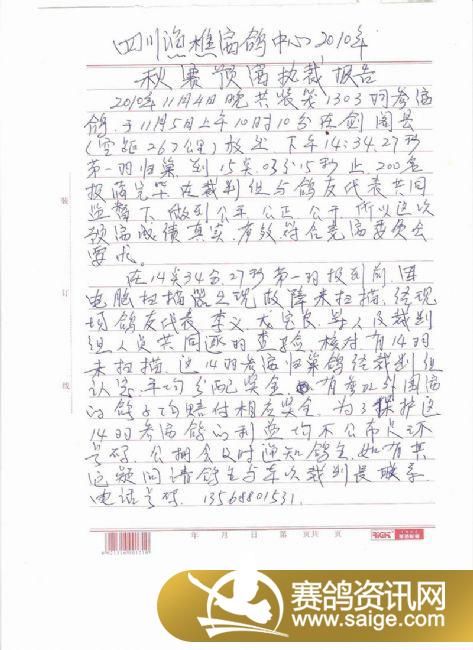 四川渔樵赛鸽中心2010年
秋赛预赛执裁报告
2010年11月4日晚共装笼1303羽参赛
鸽,于11月5日上午10时10分在剑阁县
(空距267公里)放出 下午14:34.27秒
第一羽归巢到15点.03分15秒止,200名
报满完毕在裁判组与鸽友代表共同
监督下.做到公平.公正.公开,所以这次
预赛成绩真实.有效符合竞赛委员会
要求。
在14点34分.27秒第一羽报到前因
电脑扫描器出现故障未扫描.经现
场鸽友代表.李义 等人及裁判
组人员共同 的查验.核对有14羽
未扫描.这14羽参赛归巢鸽经裁判组
认定.平均分配奖金. 有参加 团赛
的鸽子均赔付相应奖金.为了保护这
14羽参赛鸽的利益均不公布足环
号码.公棚会及时通知鸽主.如有其
它疑问请鸽主与本次裁判长联系.
电话号码:13568801531.
装
订
线
年 月 日 第 页共 页
赛鸽资讯网
www.saige.com